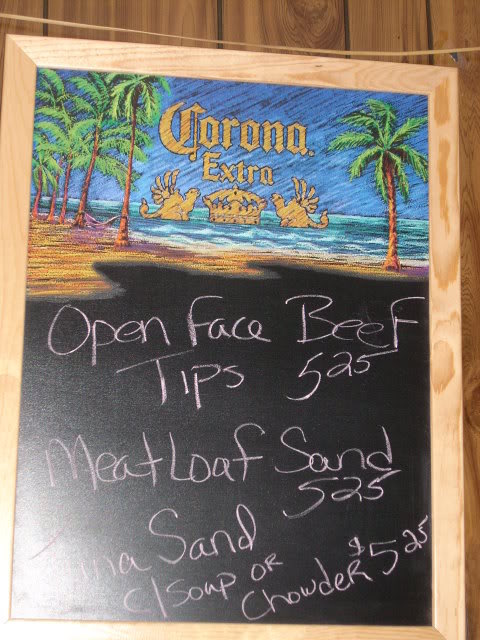 Corona.
Extra
Open Face Beef
Tips 525
Meat Loaf Sand
525
Sand
c/ Soup or
Chowder $525